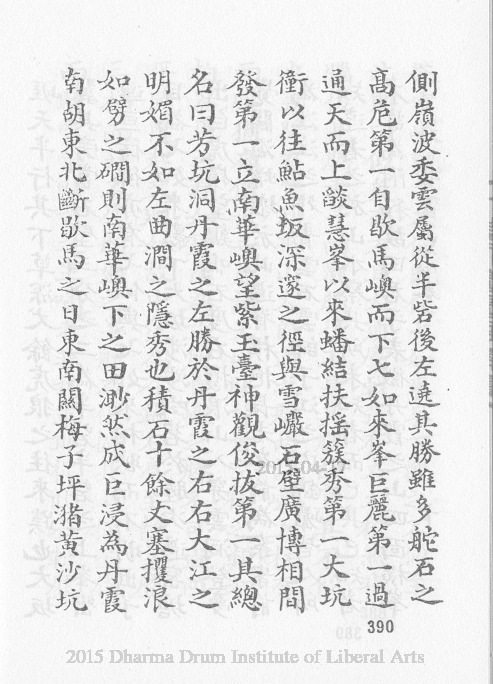 側嶺波委雲屬從半岩後左遶其勝雖多舵石之
高危第一自歇馬嶼而下七如來峯巨麗第一過
通天而上燄慧峯以來蟠結扶搖簇秀第一大坑
衝以往鮎魚坂深邃之徑與雪巖石壁廣博相間
發第一立南華嶼望紫玉臺神觀俊拔第一其總
名曰芳坑洞丹霞之左勝於丹霞之右右大江之
明媚不如左曲澗之隱秀也積石十餘丈塞攫浪
如劈之磵則南華嶼下之田渺然成巨浸為丹霞
南胡東北斷歇馬之日東南闢梅子坪潴黃沙坑
390
2015 Dharma Drum Institute of Liberal Arts